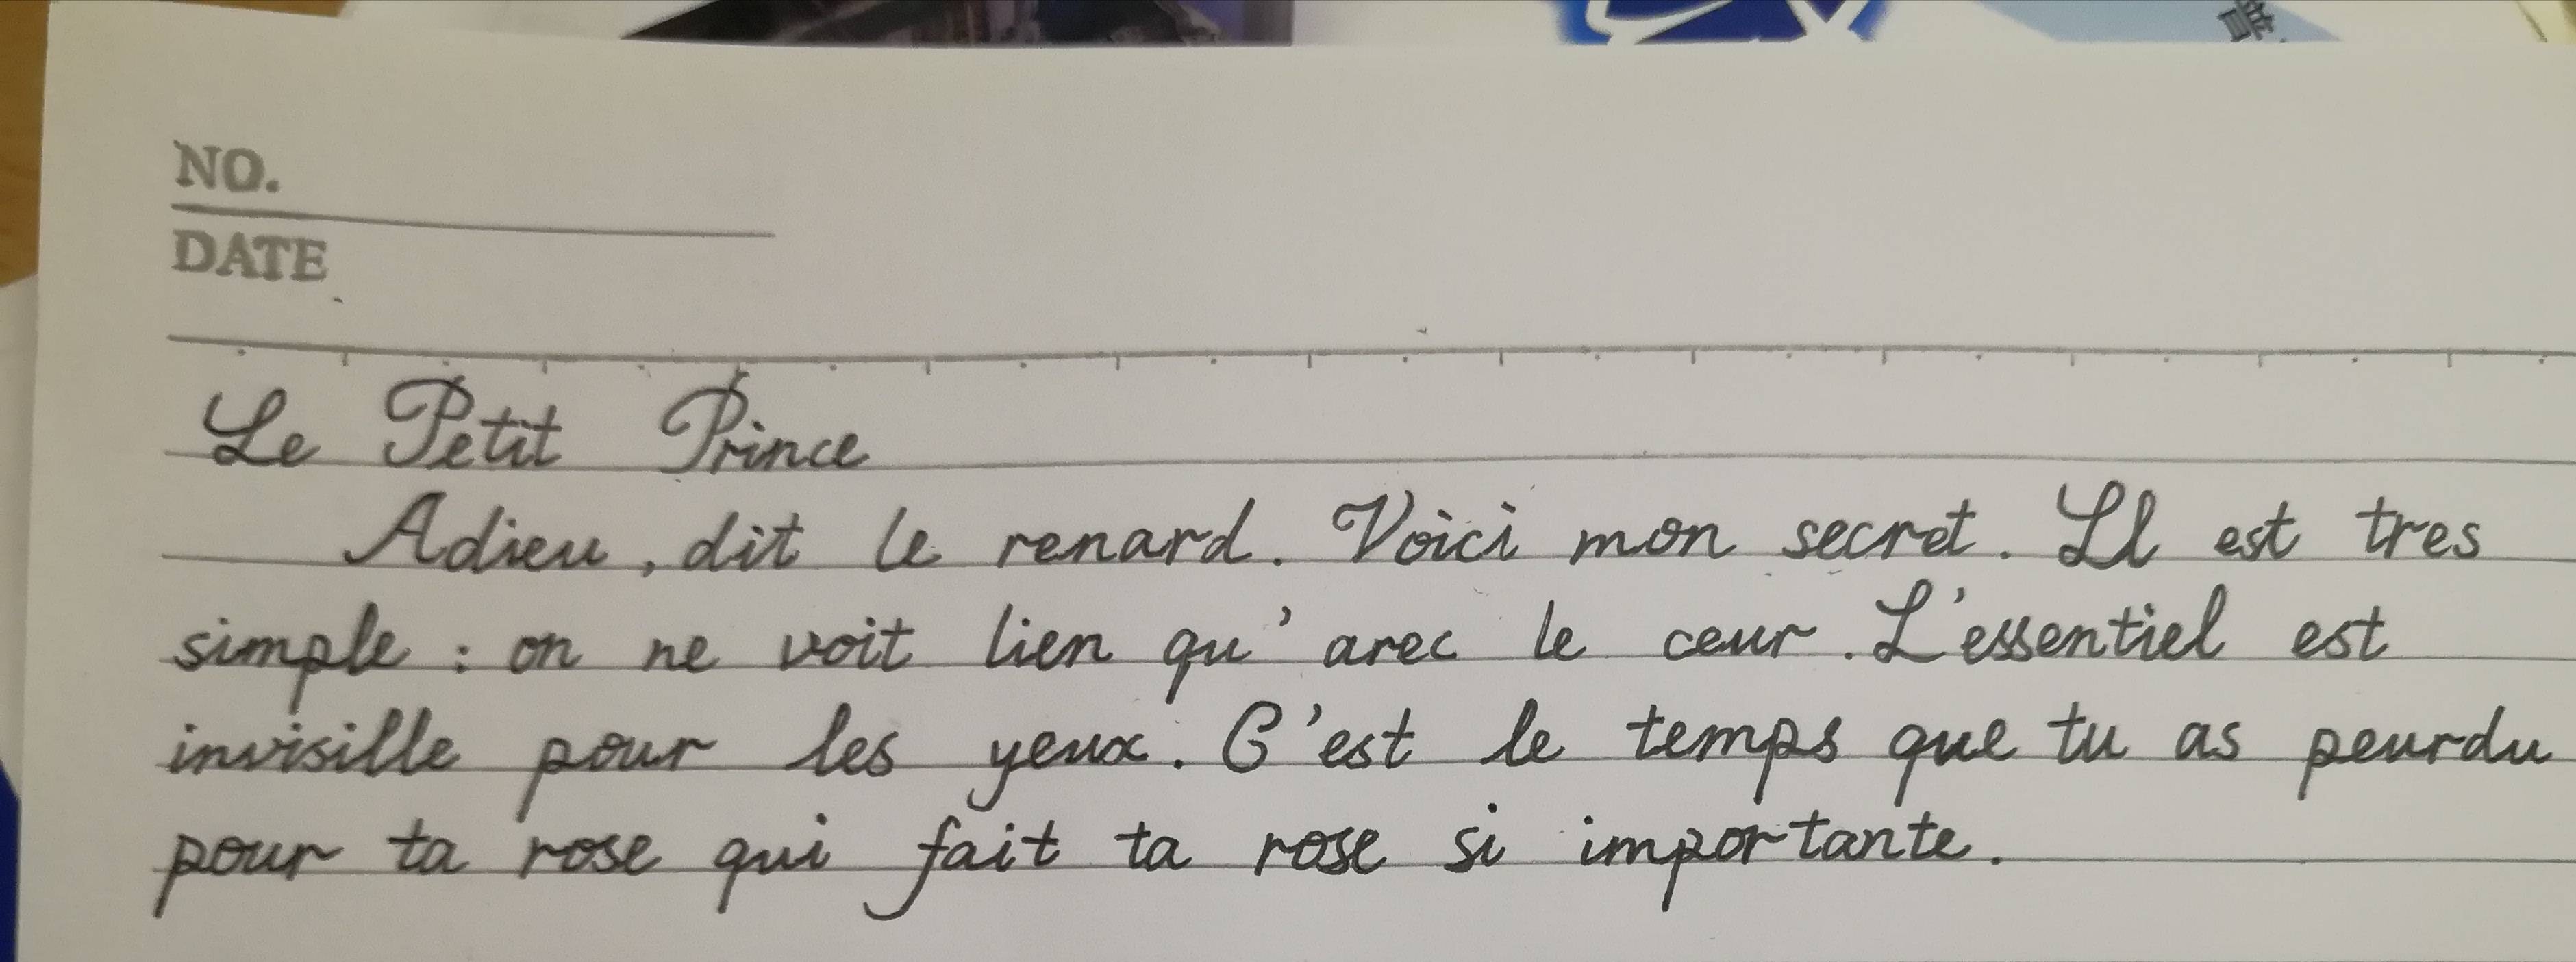 NO.
DATE
Le Petit Prince
Adieu, dit le renard. Voici mon secret. Il est tres
simple : on ne voit lien qu' arec le ceur. L'essentiel est
invisille pour les yeux. C'est le temps que tu as peurdu
pour ta rose qui fait ta rose si importante.